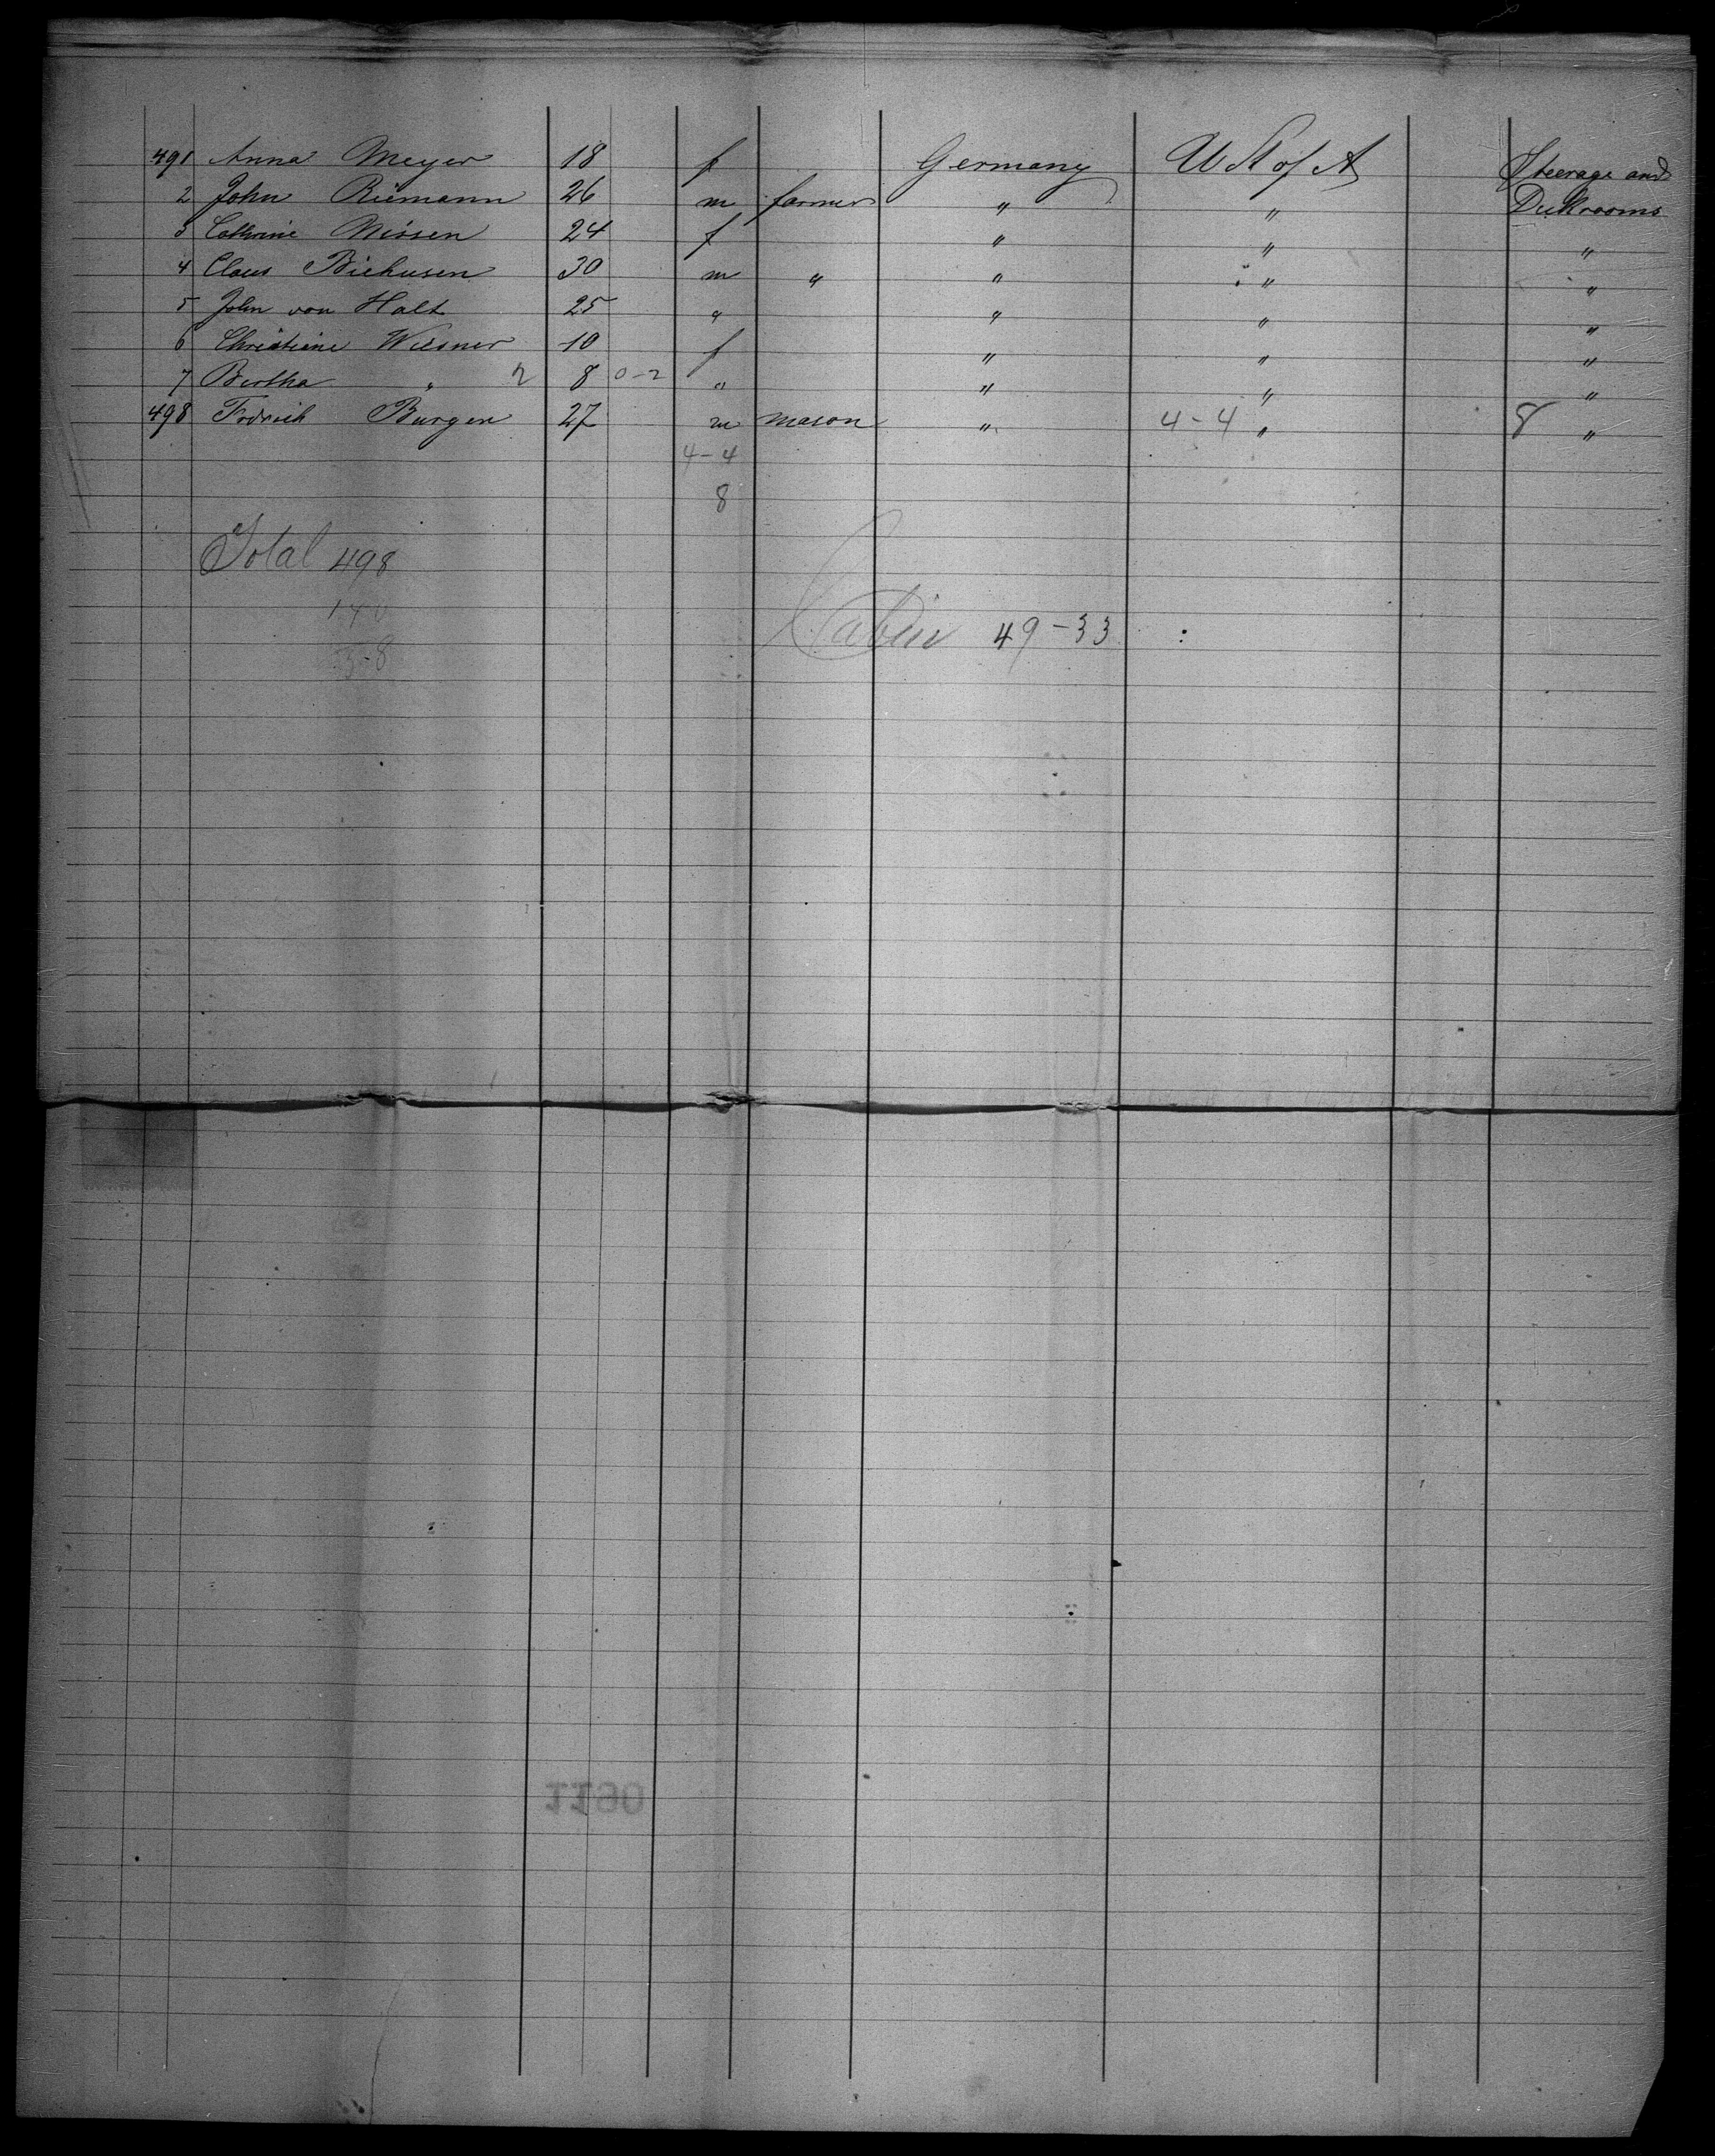 491 Anna Meyer 18 f Germany U St of A Steerage and
2 John Riemann 26 m farmer " " Deckrooms
3 Cathrine Nissen 24 f " " "
4 Claus Biehusen 30 m " " " "
5 John von Halt 25 " " " "
6 Christine Wiesner 10 f " " "
7 Bertha " 2 8 0-2 " " " "
498 Fredrich Burgen 27 m mason " 4-4 " 8 "
4-4
8
Total 498
140
358
Cabin 49-33
1190